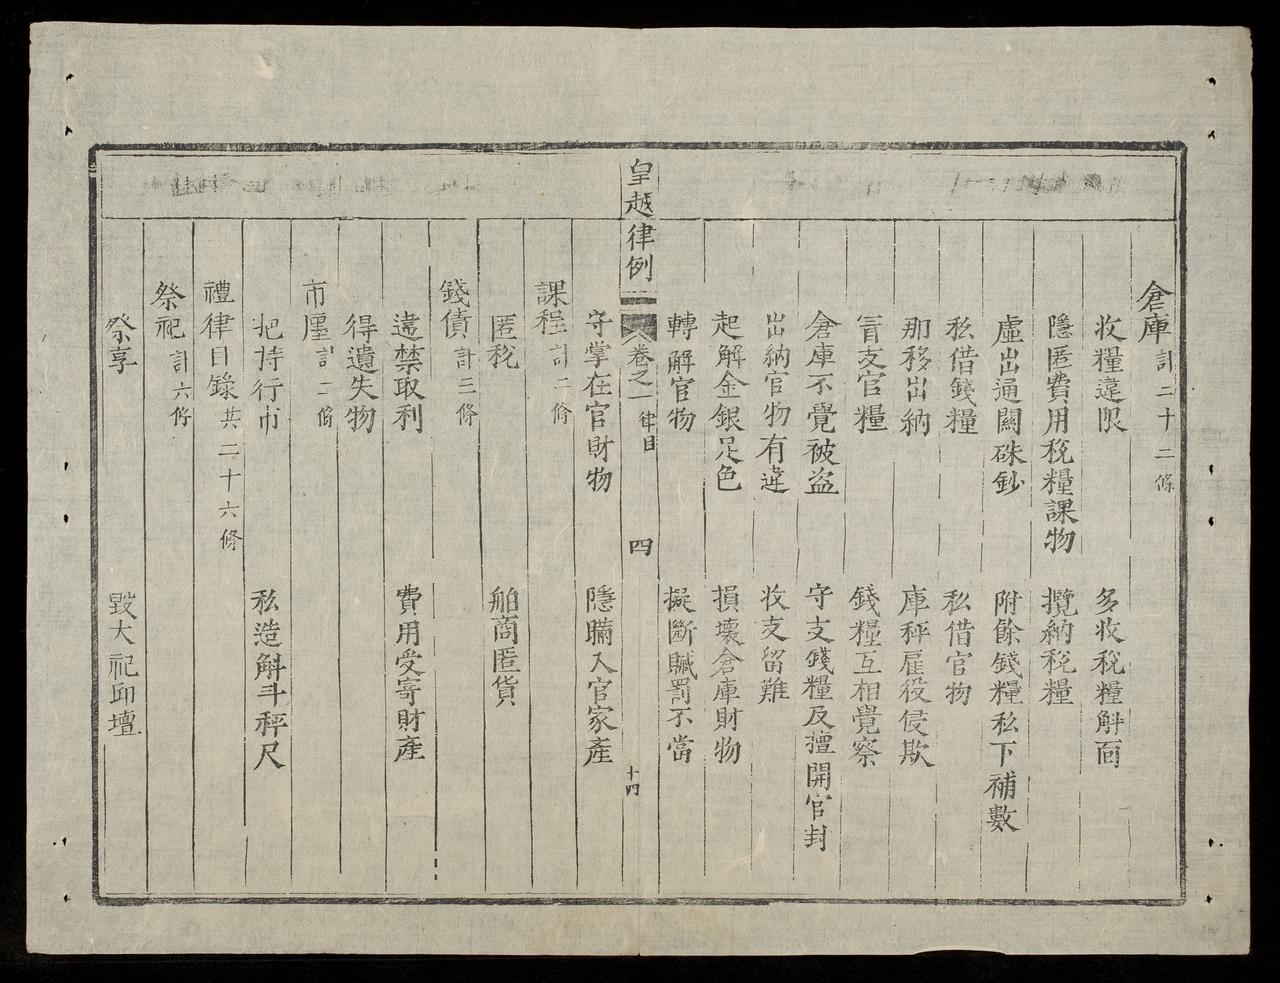 倉庫 計二十二條
收糧違限 多收稅糧斛面
隱匿費用稅糧課物 攬納稅糧
虛出通關硃鈔 附餘錢糧私下補數
私借錢糧 私借官物
那移出納 庫秤雇役侵欺
冒支官糧 錢糧互相覺察
倉庫不覺被盜 守支錢糧及擅開官封
出納官物有違 收支留難
起解金銀足色 損壞倉庫財物
轉解官物 擬斷贓罰不當
皇越律例 卷之一 律目 四
守掌在官財物 隱瞞入官家產
課程 計二條
匿稅 舶商匿貨
錢債 計三條
違禁取利 費用受寄財產
得遺失物
市廛 計二條
把持行市 私造斛斗秤尺
禮律目錄 共二十六條
祭祀 計六條
祭享 毀大祀邱壇